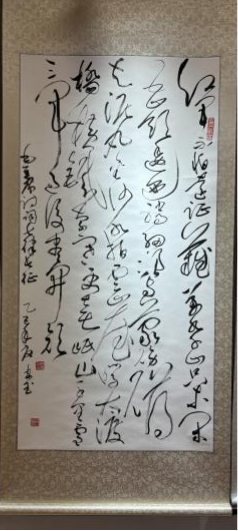 红军不怕远征难万水千山只等闲
五岭逶迤腾细浪乌蒙磅礴
走泥丸金沙水拍云崖暖大渡
桥横铁索寒更喜岷山千里雪
三军过后尽开颜
毛主席诗词七律长征 乙 年 书